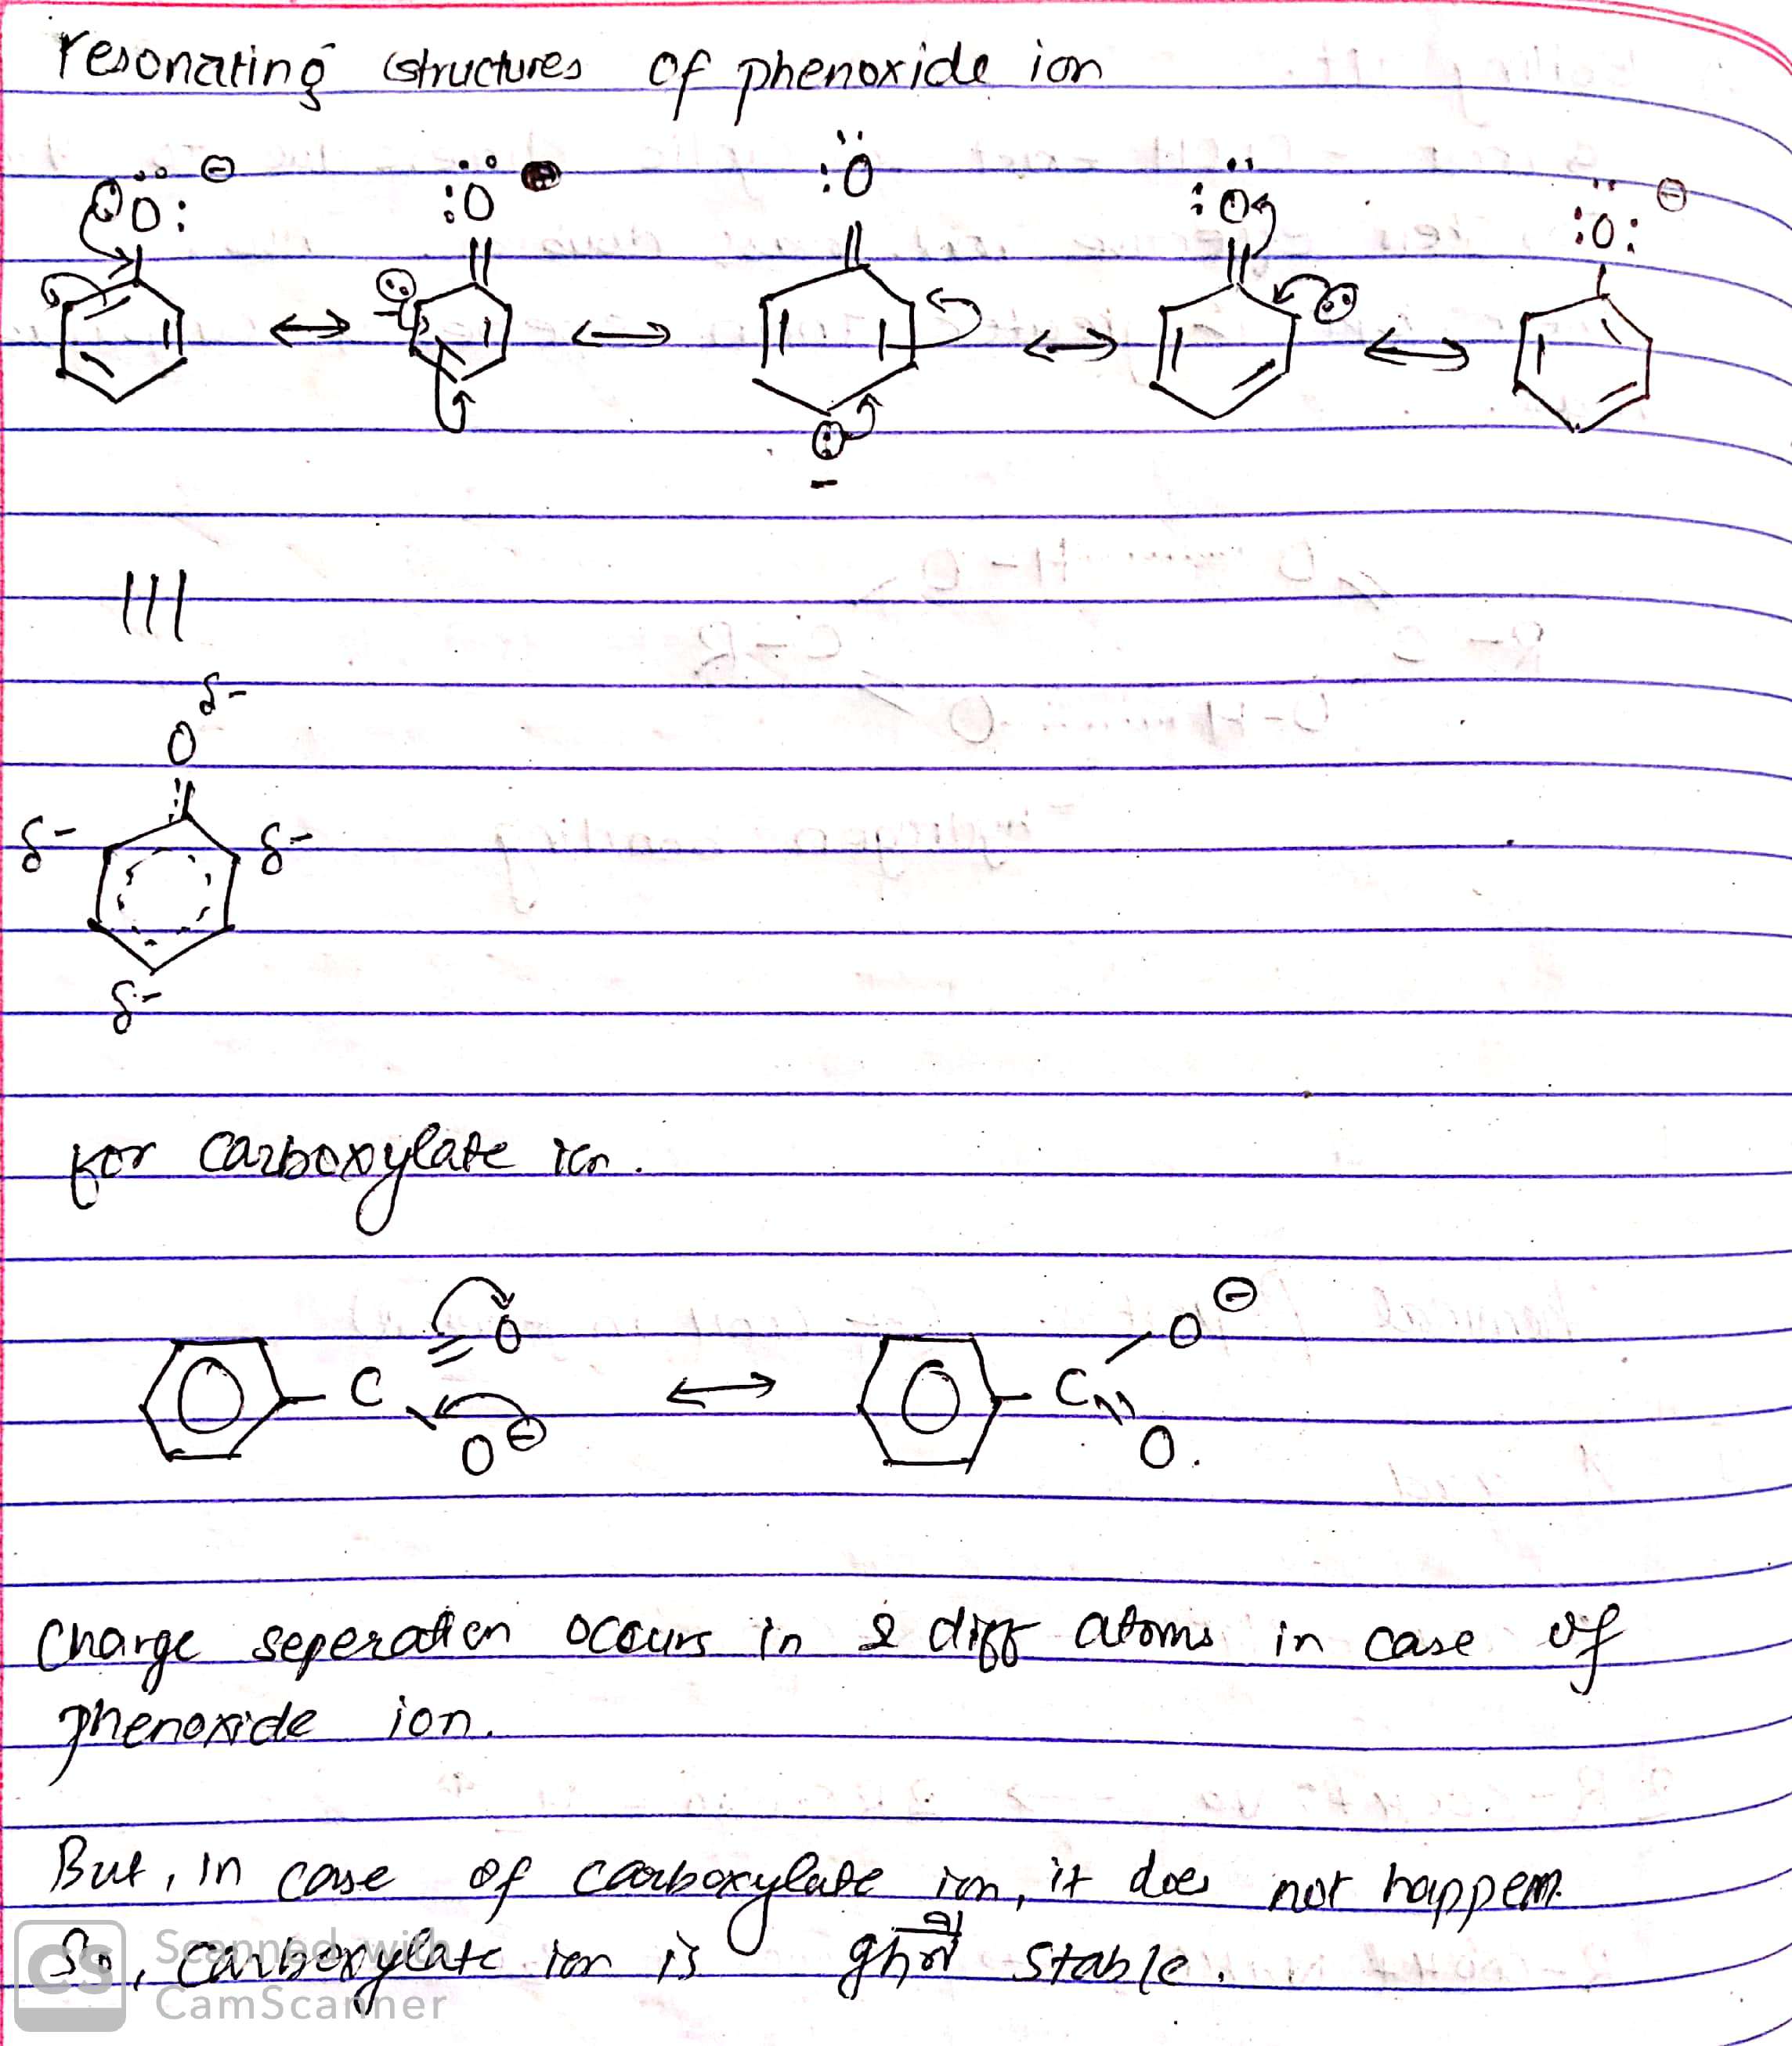 resonating structures of phenoxide ion
:Ö: ⊖ :Ö :Ö :Ö :Ö: ⊖
↔ ↔ ↔ ↔
-
|||
δ-
O
δ- δ-
δ-
for carboxylate ion.
C O O ⊖ ↔ C O ⊖ O.
Charge seperation occurs in 2 diff atoms in case of
phenoxide ion.
But, in case of carboxylate ion, it does not happen.
So, carboxylate ion is stable.
CS Scanned with
CamScanner